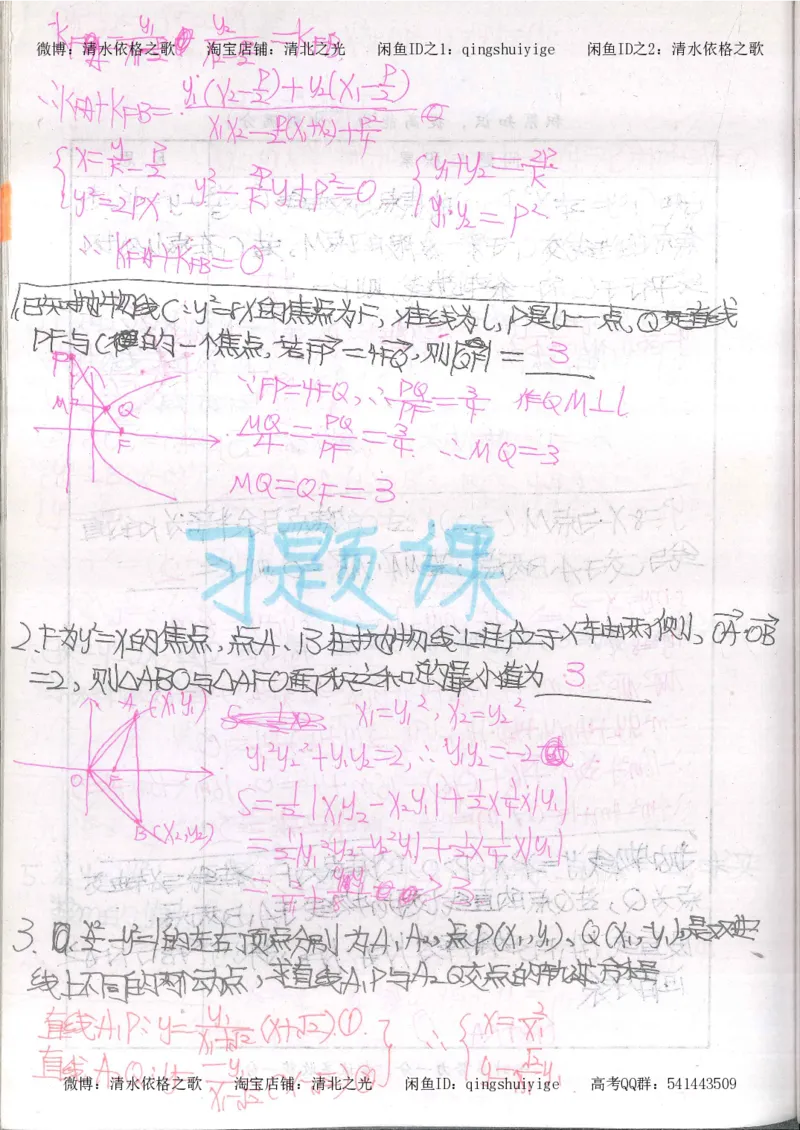 微博：清水依格之歌 淘宝店铺：清北之光 闲鱼ID之1：qingshuiyige 闲鱼ID之2：清水依格之歌
∴KFA+KFB= y₁(y₂-P/2)+y₂(x₁-P/2) / x₁x₂-P/2(x₁+x₂)+P²/4
{x=y/k-P/2 {y₁+y₂=2P/k
y²=2Px y²-2P/k y+P²=0 y₁y₂=P²
∴KFA+KFB=0
1.已知抛物线C:y²=8x的焦点为F,准线为l,P是l上一点,Q是直线
PF与C的一个焦点,若FP=4FQ,则|QF|=3
∵FP=4FQ,∴PQ/PF=3/4 作QM⊥l
P M Q F
MQ/4=PQ/PF=3/4 ∴MQ=3
MQ=QF=3
习题课
2.F为y²=x的焦点,点A、B在抛物线上且位于x轴两侧,OA·OB
=2,则△ABO与△AFO面积之和的最小值为 3
A(x₁y₁) x₁=y₁²,x₂=y₂²
y₁²y₂²+y₁y₂=2,∴y₁y₂=-2
O F
S=1/2|x₁y₂-x₂y₁|+1/2×1/4×|y₁|
B(x₂,y₂)
=1/2|y₁²y₂-y₂²y₁|+1/2×1/4×|y₁|
3. x²/2-y²=1的左右顶点分别为A₁A₂,点P(x₁,y₁)、Q(x₁,-y₁)是双曲
线上不同的两个动点,求直线A₁P与A₂Q交点的轨迹方程
直线A₁P:y=y₁/x₁+√2(x+√2)① ∴{x=2/x₁
直线A₂Q:y=-y₁/x₁-√2(x-√2)② y=√2y₁/x₁
微博：清水依格之歌 淘宝店铺：清北之光 闲鱼ID：qingshuiyige 高考QQ群：541443509